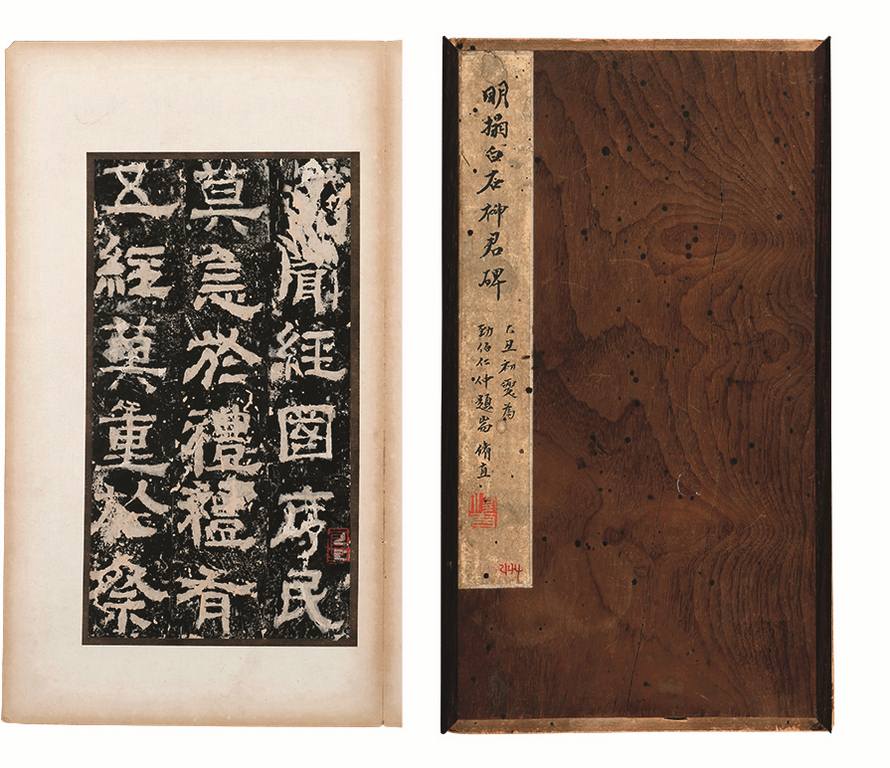 聞經國序民
莫急於禮禮有
五經莫重於祭
明搨白石神君碑
丁丑初夏為
勁伯仁仲題耑脩直